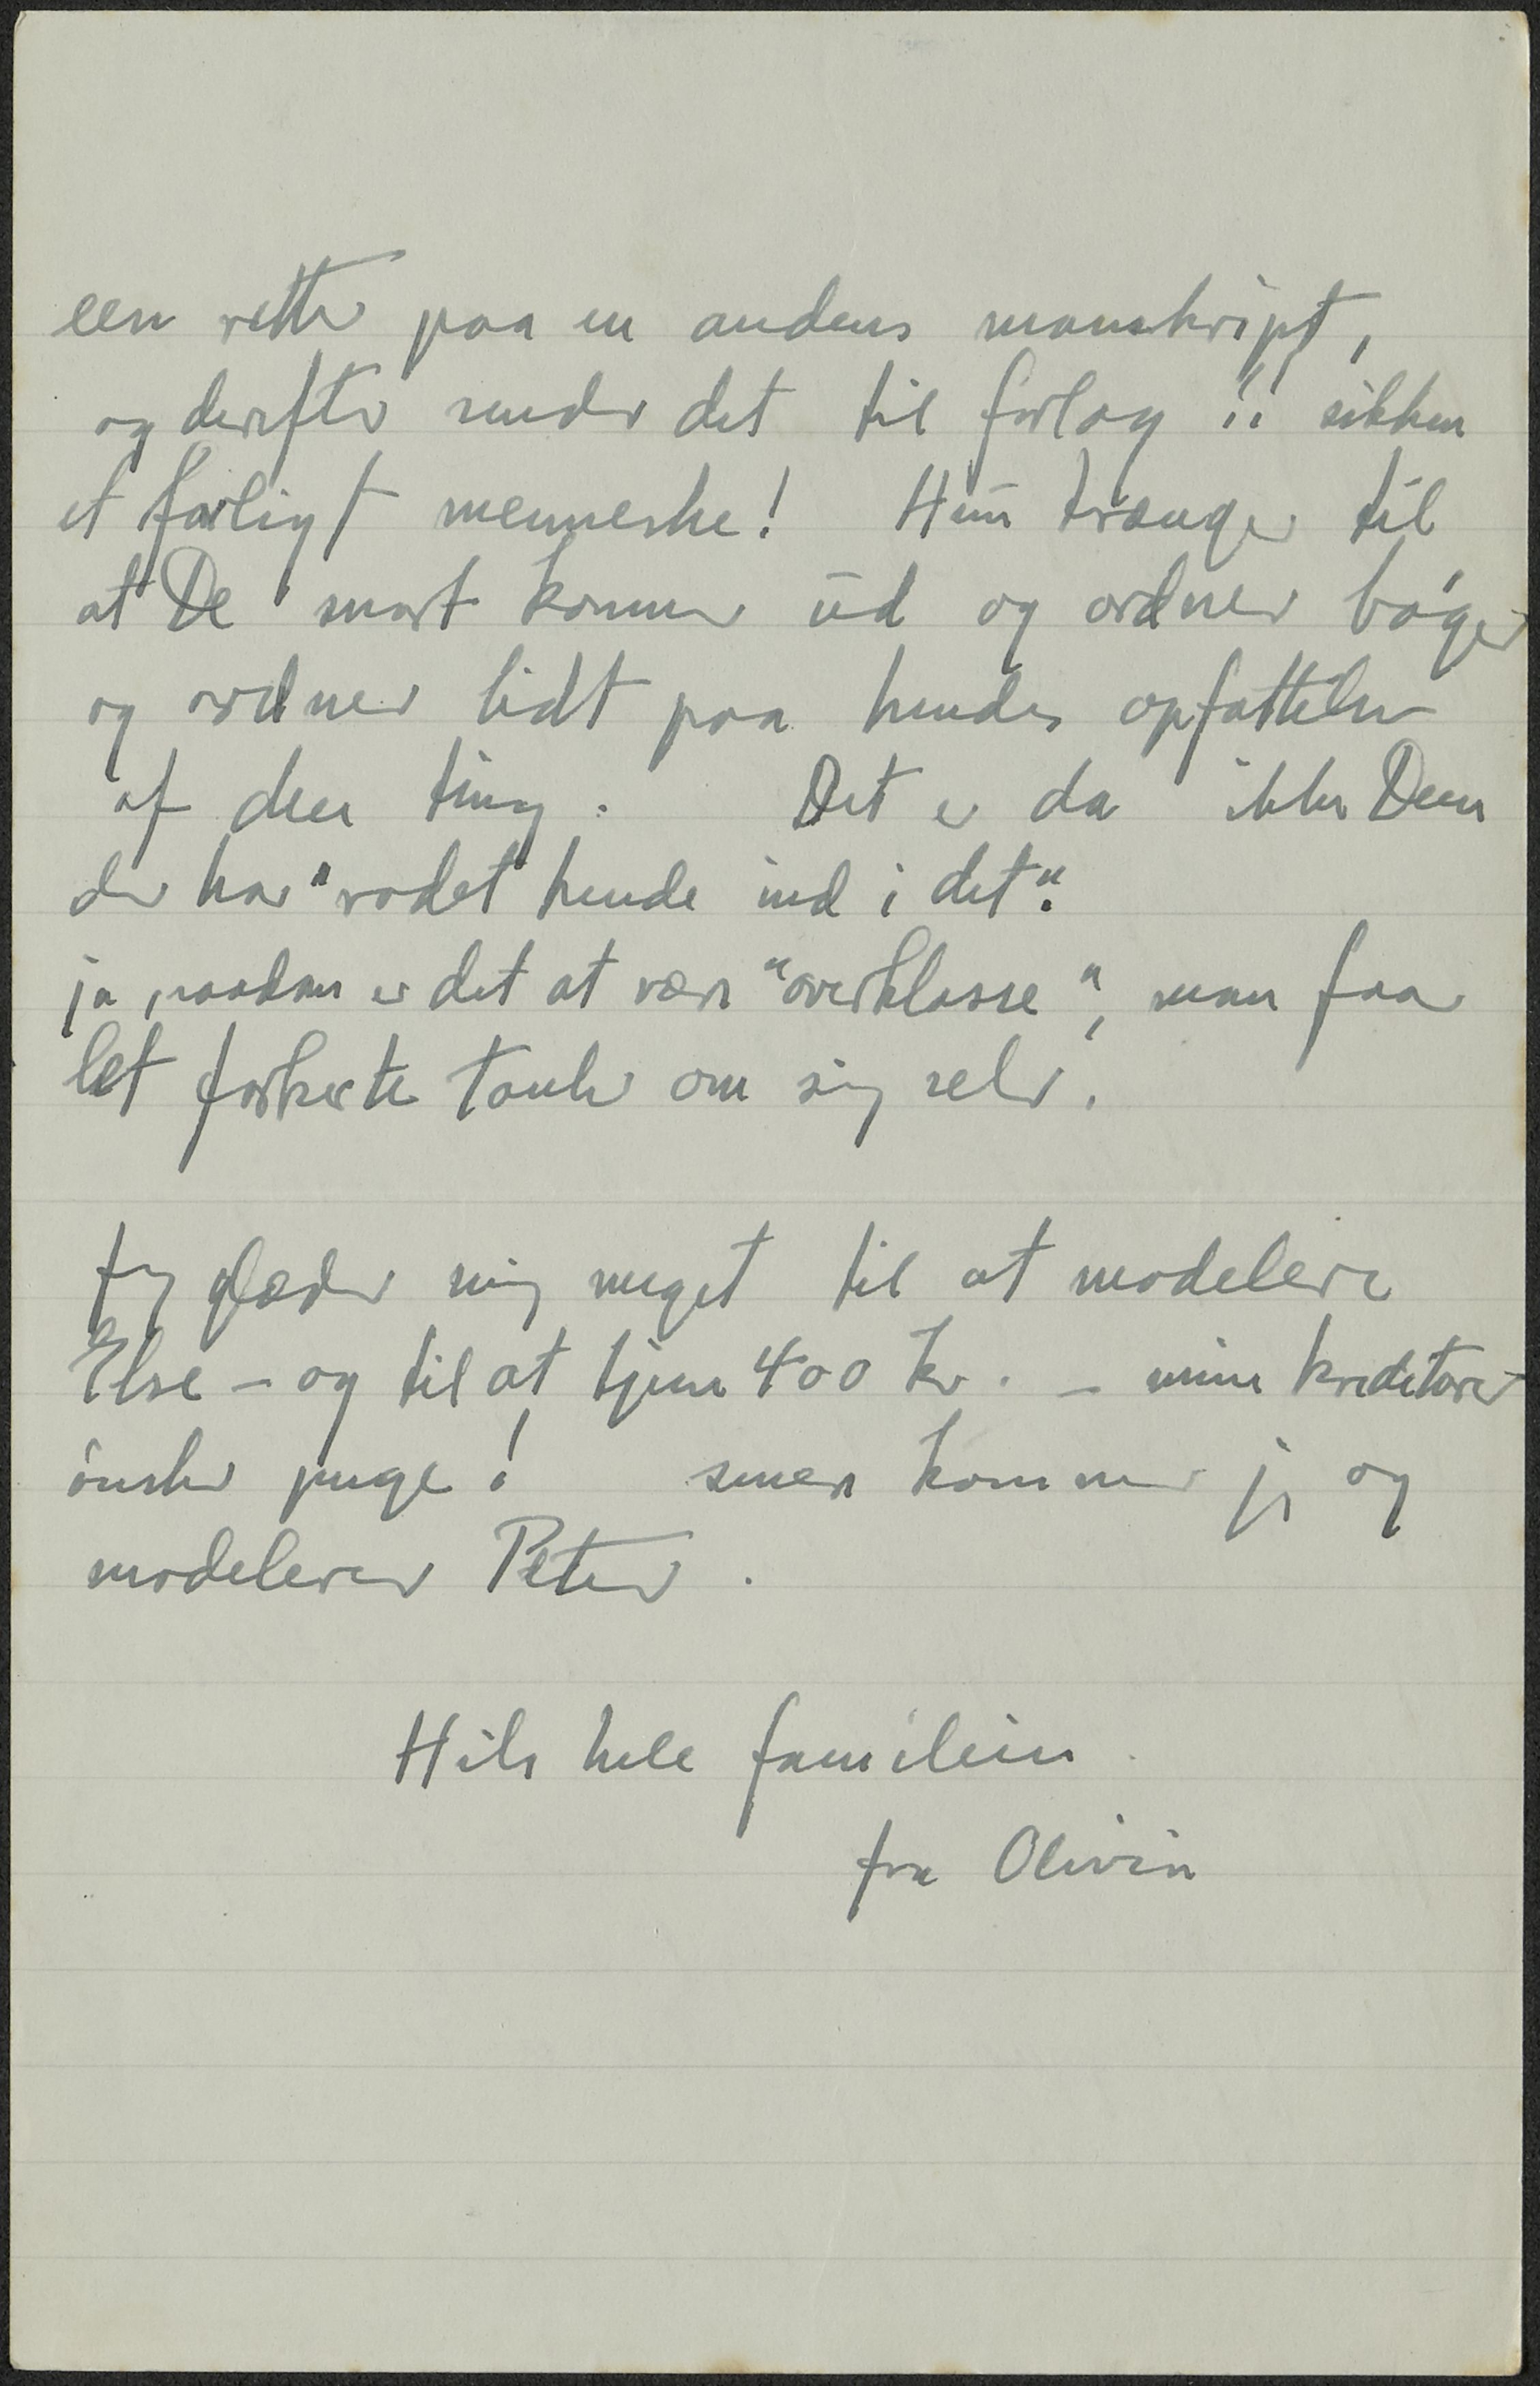 een retter paa en andens manuskript,
og derefter sender det til forlag !! sikken
et farligt menneske! Hun trænger til
at De snart kommer ud og ordner bøger
og ordner lidt paa hendes opfattelse
af den ting. Det er da ikke Dem
der har "rodet hende ind i det".
ja saadan er det at være "overklasse", man faar
let forkerte tanker om sig selv.
Jeg glæder mig meget til at modelere
Else – og til at tjene 400 kr. – mine kreditorer
ønsker penge! senere kommer jeg og
modelerer Peter.
Hils hele familien
fra Olivia